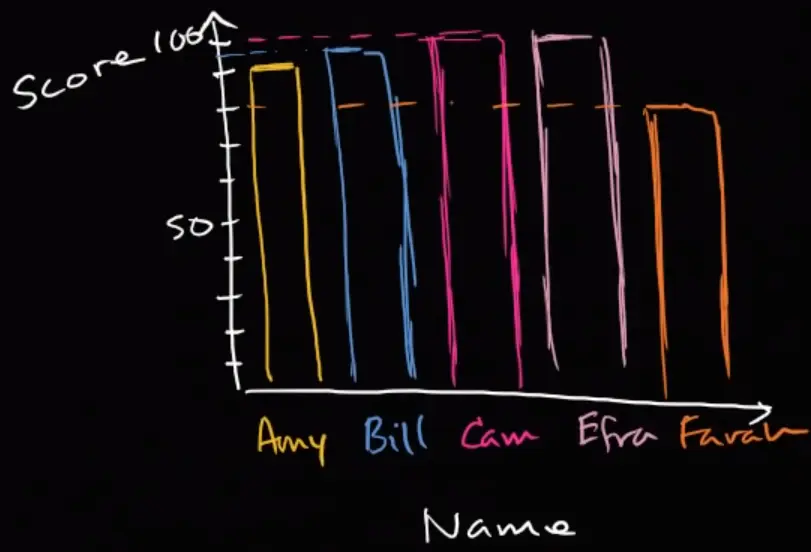 Score 100
50
Amy Bill Cam Efra Farah
Name